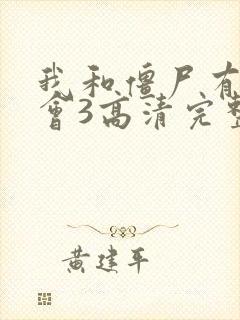 我和僵尸有
会3高清完整
黄建平